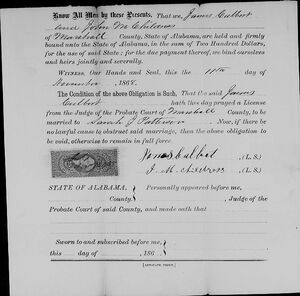 Know All Men by these Presents, That we, James Culbert
and John M Childress
of Marshall County, State of Alabama, are held and firmly
bound unto the State of Alabama, in the sum of Two Hundred Dollars,
for the use of said State; for the due payment thereof, we bind ourselves
and heirs jointly and severally.
Witness, Our Hands and Seal, this the 11th day of
November 1868.
The Condition of the above Obligation is Such, That the said James
Culbert hath this day prayed a License
from the Judge of the Probate Court of Marshall County, to be
married to Sarah J Now, if there be
no lawful cause to obstruct said marriage, then the above obligation to
be void, otherwise to remain in full force
James Culbert (L. S.)
J. M. Childress (L. S.)
STATE OF ALABAMA, Personally appeared before me,
County. Judge of the
Probate Court of said County, and made oath that
Sworn to and subscribed before me,
this day of 186